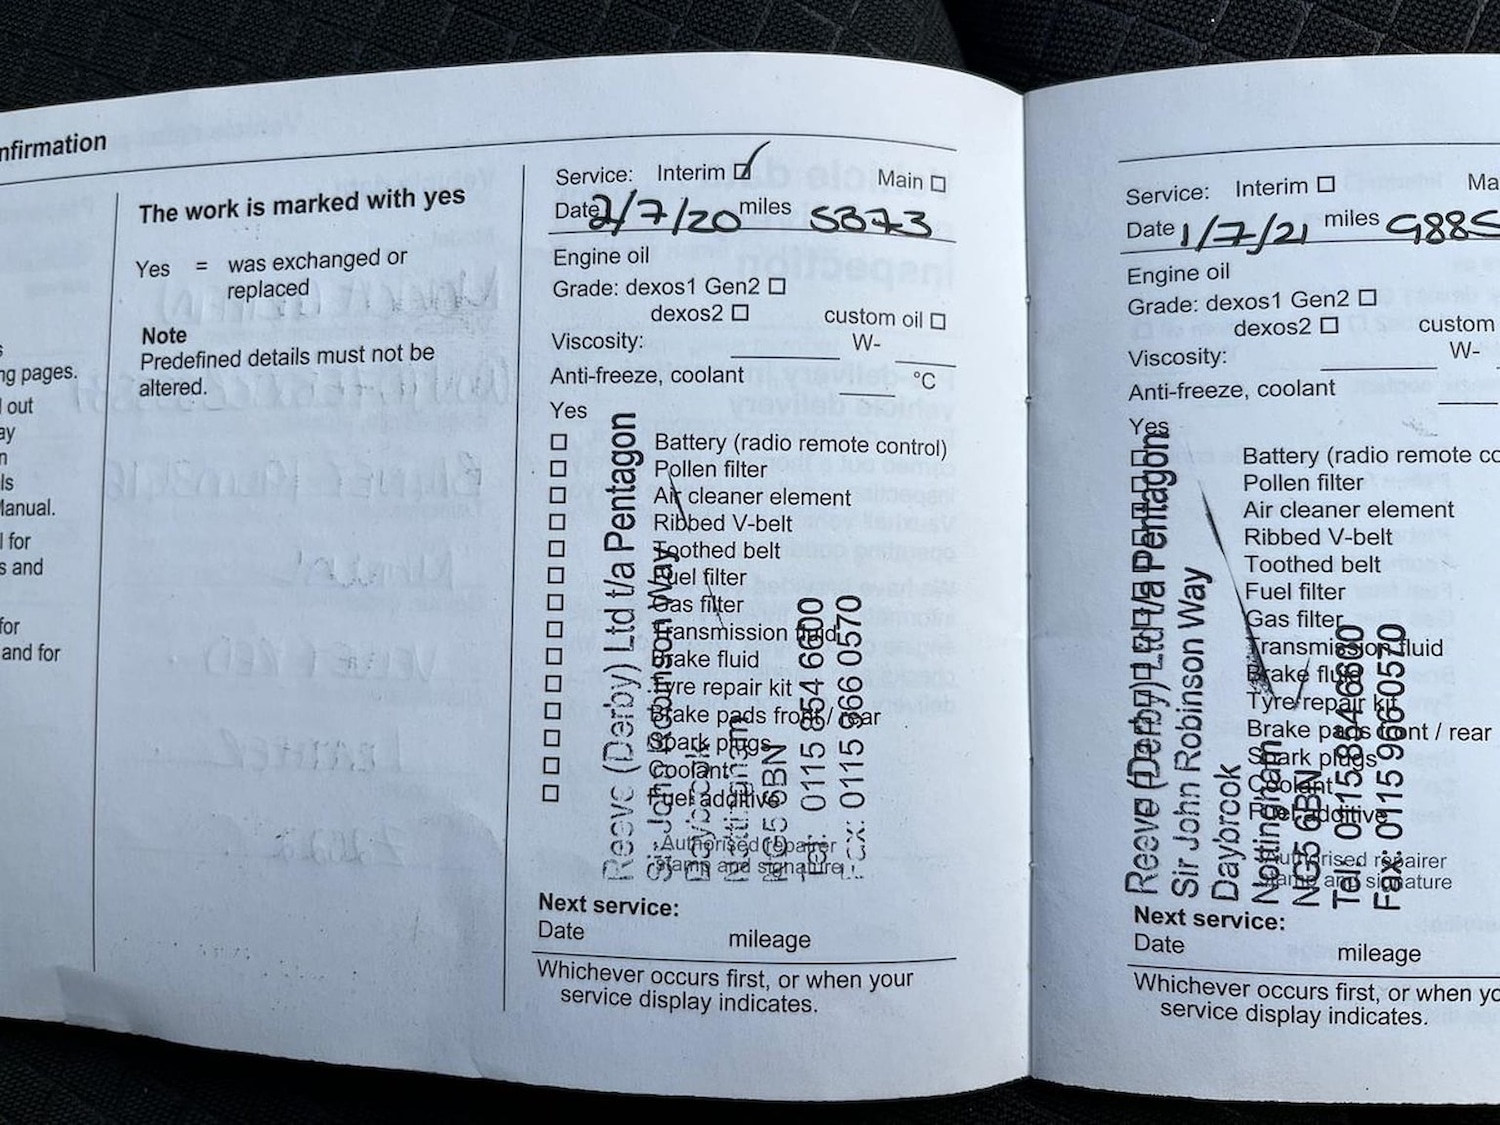 nfirmation
ng pages.
out
ay
n
ls
Manual.
l for
s and
for
and for
The work is marked with yes
Yes = was exchanged or
replaced
Note
Predefined details must not be
altered.
Service: Interim Main
Date 2/7/20 miles 5373
Engine oil
Grade: dexos1 Gen2
dexos2 custom oil
Viscosity: W-
Anti-freeze, coolant °C
Yes
Battery (radio remote control)
Pollen filter
Air cleaner element
Ribbed V-belt
Toothed belt
Fuel filter
Gas filter
Transmission fluid
Brake fluid
Tyre repair kit
Brake pads front / rear
Spark plugs
Coolant
Fuel additive
Authorised repairer
stamp and signature
Reeve (Derby) Ltd t/a Pentagon
Sir John Robinson Way
Daybrook
Nottingham
NG5 6BN
Tel: 0115 854 6600
Fax: 0115 966 0570
Next service:
Date mileage
Whichever occurs first, or when your
service display indicates.
Service: Interim Ma
Date 1/7/21 miles 9885
Engine oil
Grade: dexos1 Gen2
dexos2 custom
Viscosity: W-
Anti-freeze, coolant
Yes
Battery (radio remote co
Pollen filter
Air cleaner element
Ribbed V-belt
Toothed belt
Fuel filter
Gas filter
Transmission fluid
Brake fluid
Tyre repair kit
Brake pads front / rear
Spark plugs
Coolant
Fuel additive
Authorised repairer
stamp and signature
Reeve (Derby) Ltd t/a Pentagon
Sir John Robinson Way
Daybrook
Nottingham
NG5 6BN
Tel: 0115 854 6600
Fax: 0115 966 0570
Next service:
Date mileage
Whichever occurs first, or when yo
service display indicates.